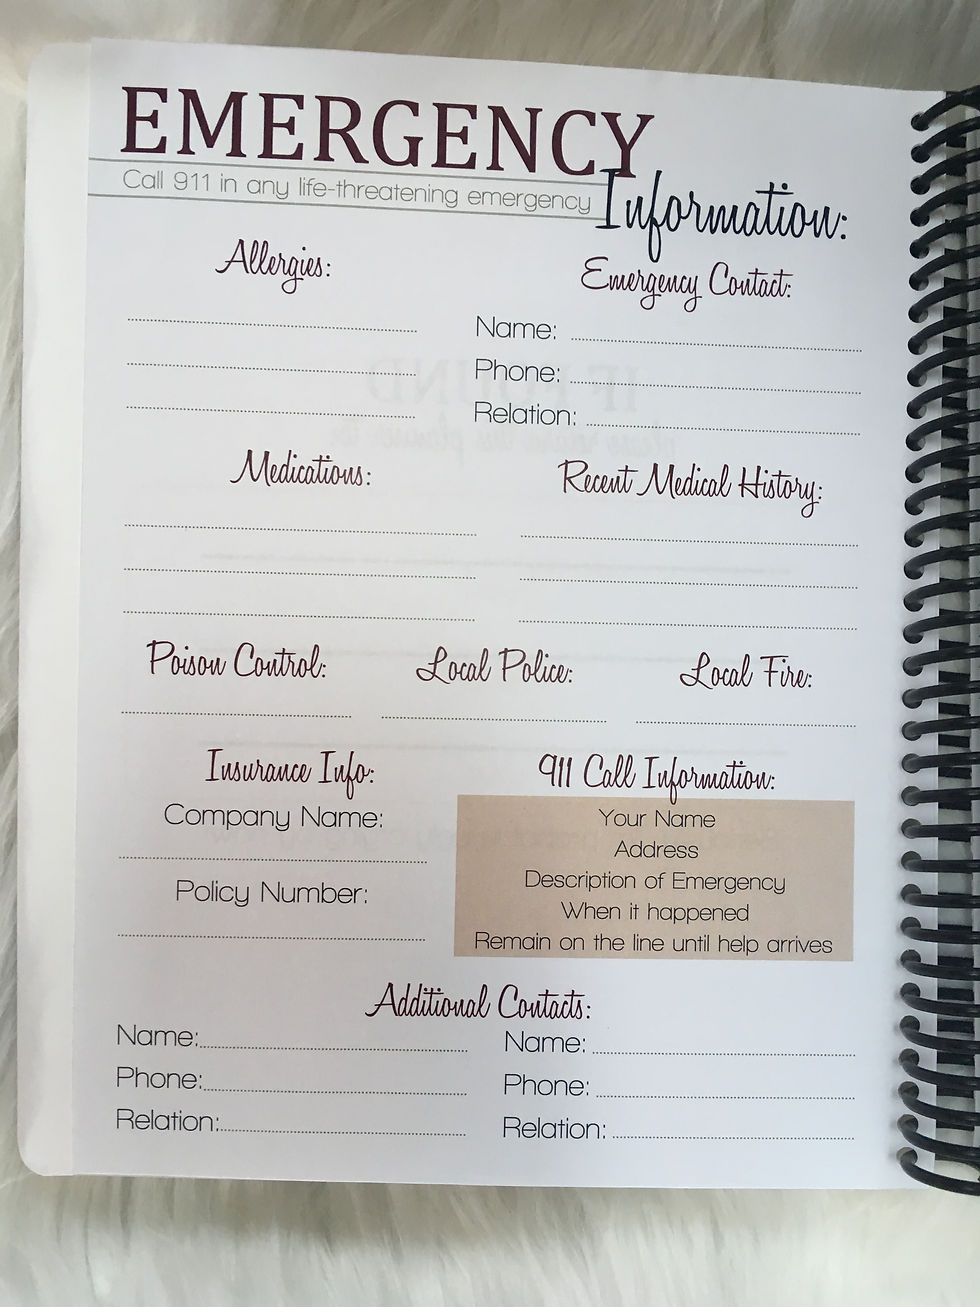 EMERGENCY
Call 911 in any life-threatening emergency
Information:
Allergies:
Emergency Contact:
Name:
Phone:
Relation:
Medications:
Recent Medical History:
Poison Control:
Local Police:
Local Fire:
Insurance Info:
Company Name:
Policy Number:
911 Call Information:
Your Name
Address
Description of Emergency
When it happened
Remain on the line until help arrives
Additional Contacts:
Name:
Phone:
Relation:
Name:
Phone:
Relation:
IF FOUND
please return this planner to: